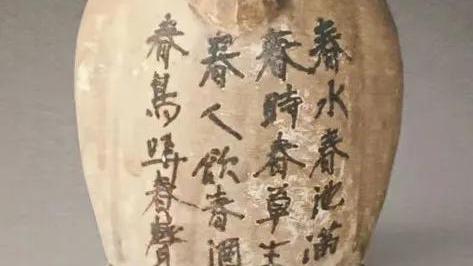 春水春池滿
春時春草生
春人飲春酒
春鳥哢春聲